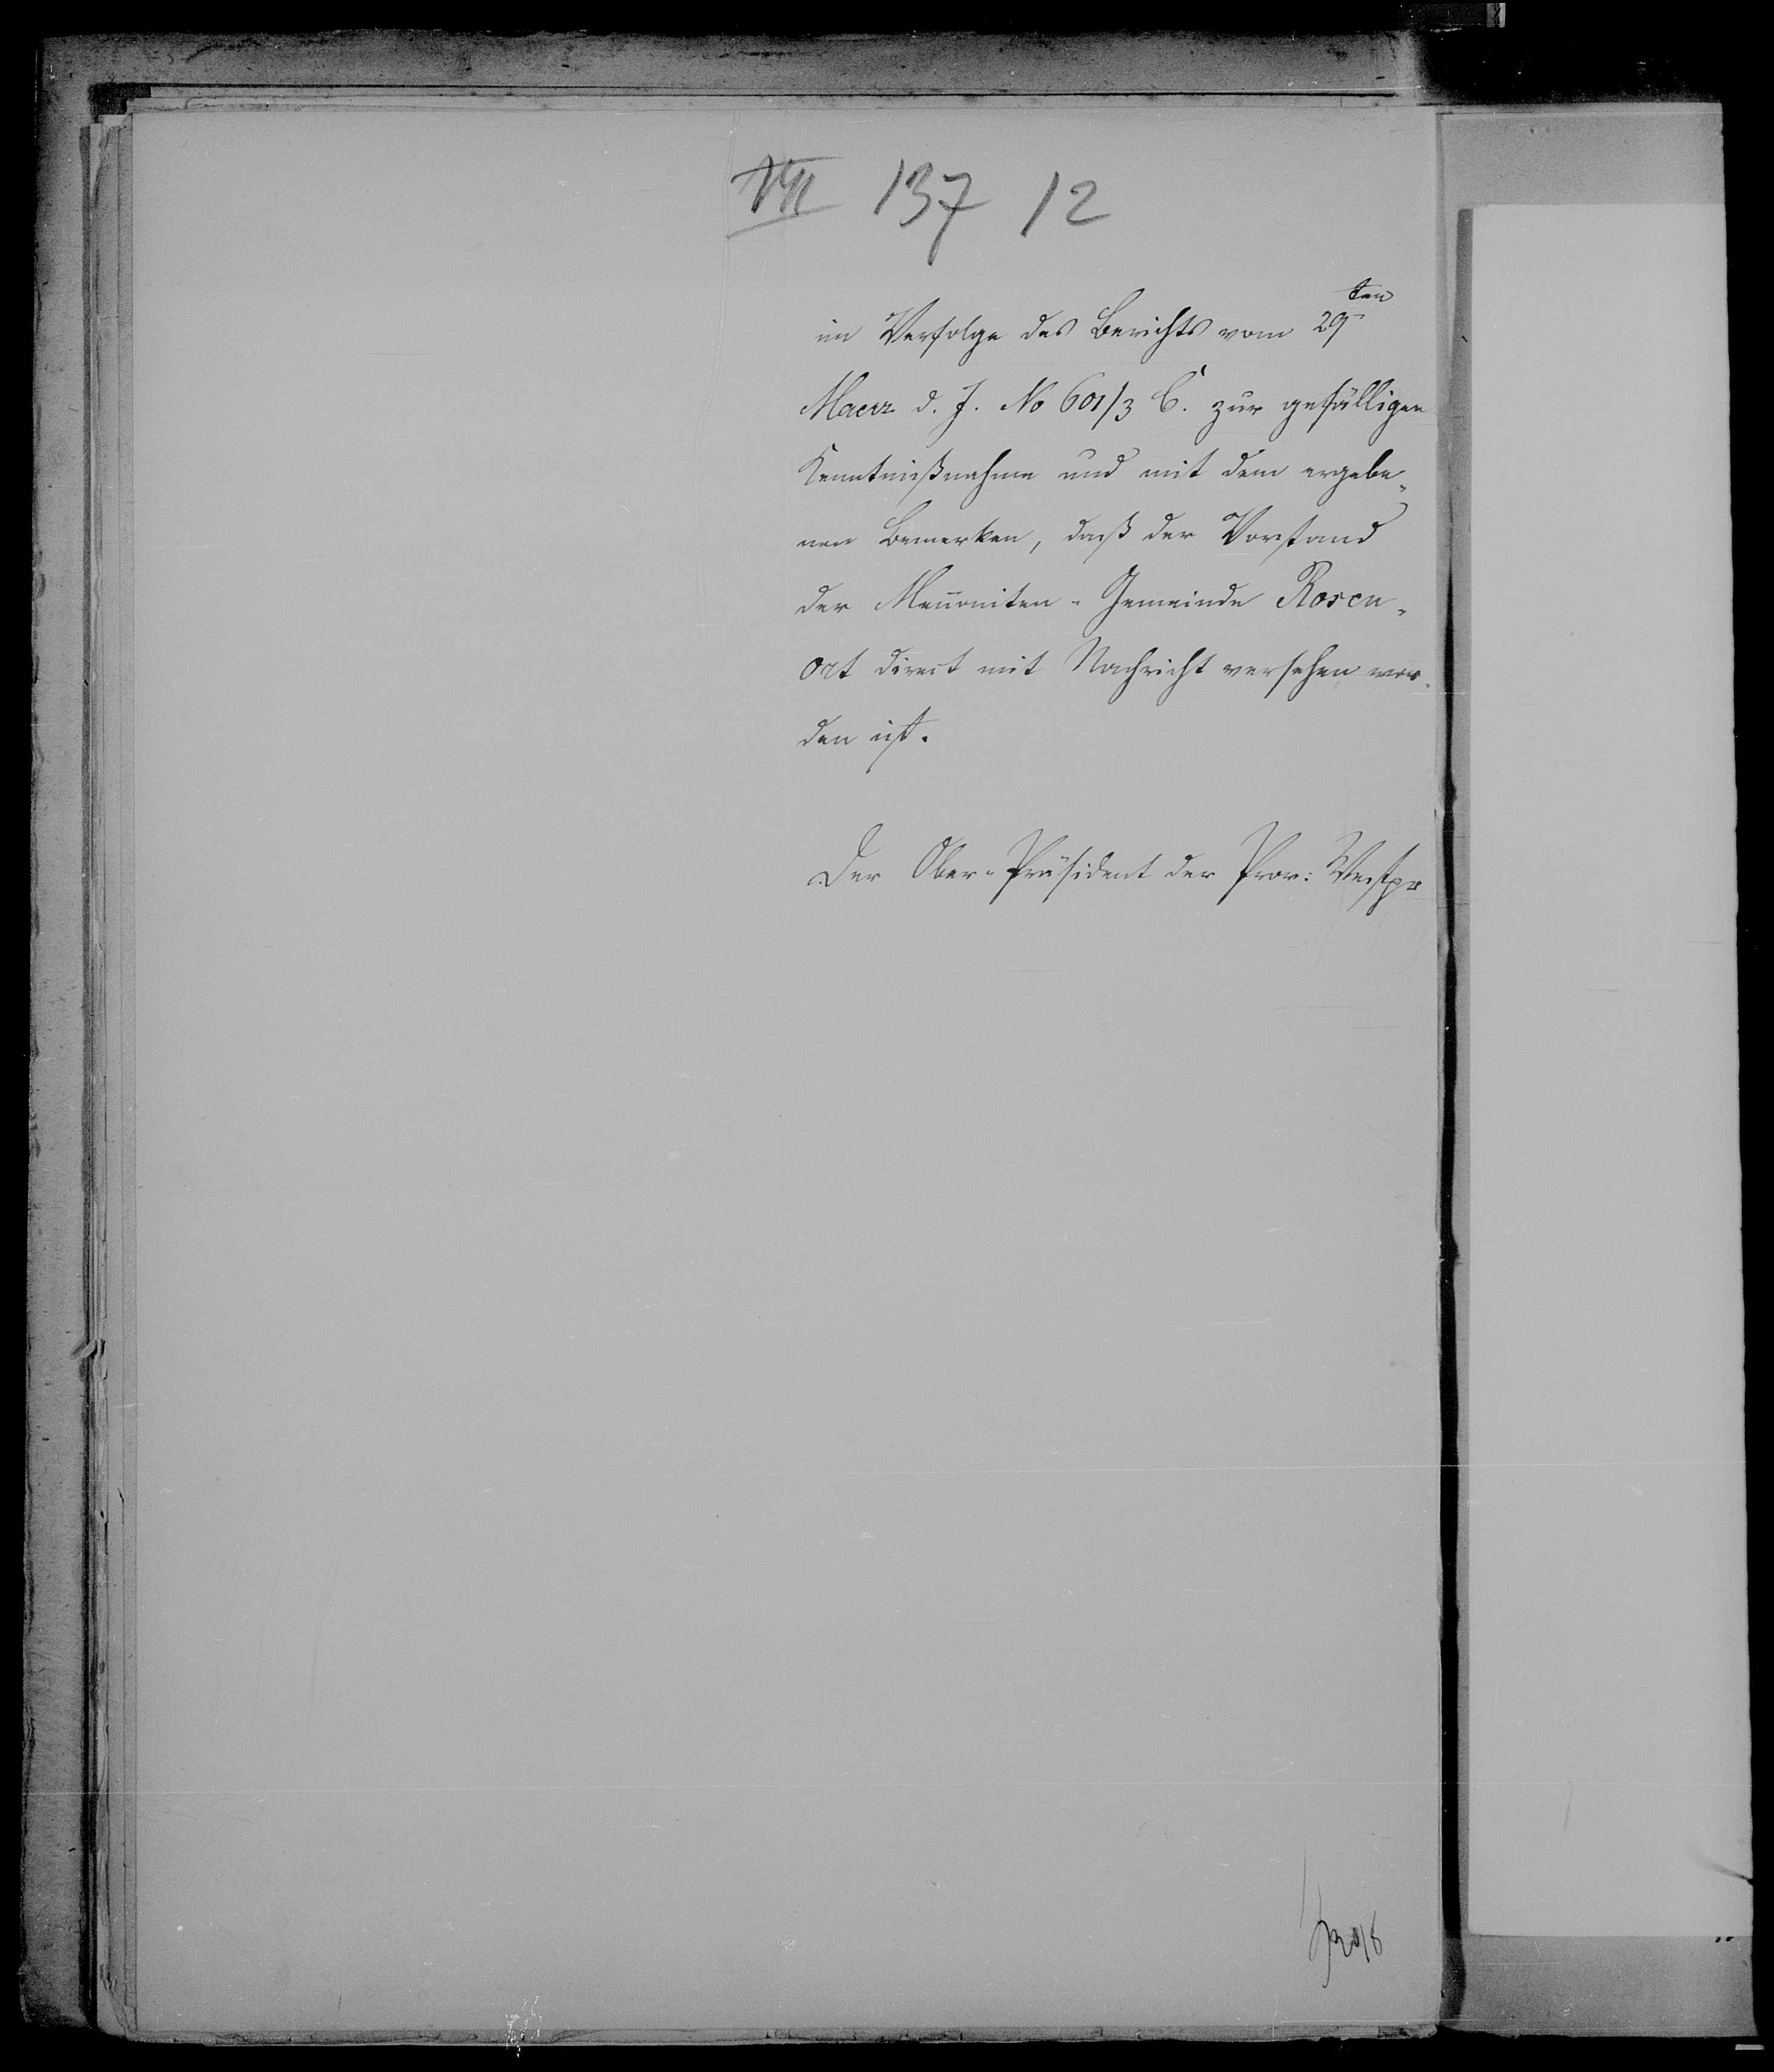 VII 137 12
im Verfolge des Berichts vom 29ten
Maerz d. J. No 601/3 C. zur gefälligen
Kenntnißnahme und mit dem ergebe-
nen Bemerken, daß der Vorstand
der Mennoniten-Gemeinde Rosen-
ort direct mit Nachricht versehen wor-
den ist.
Der Ober-Präsident der Prov: Westpr